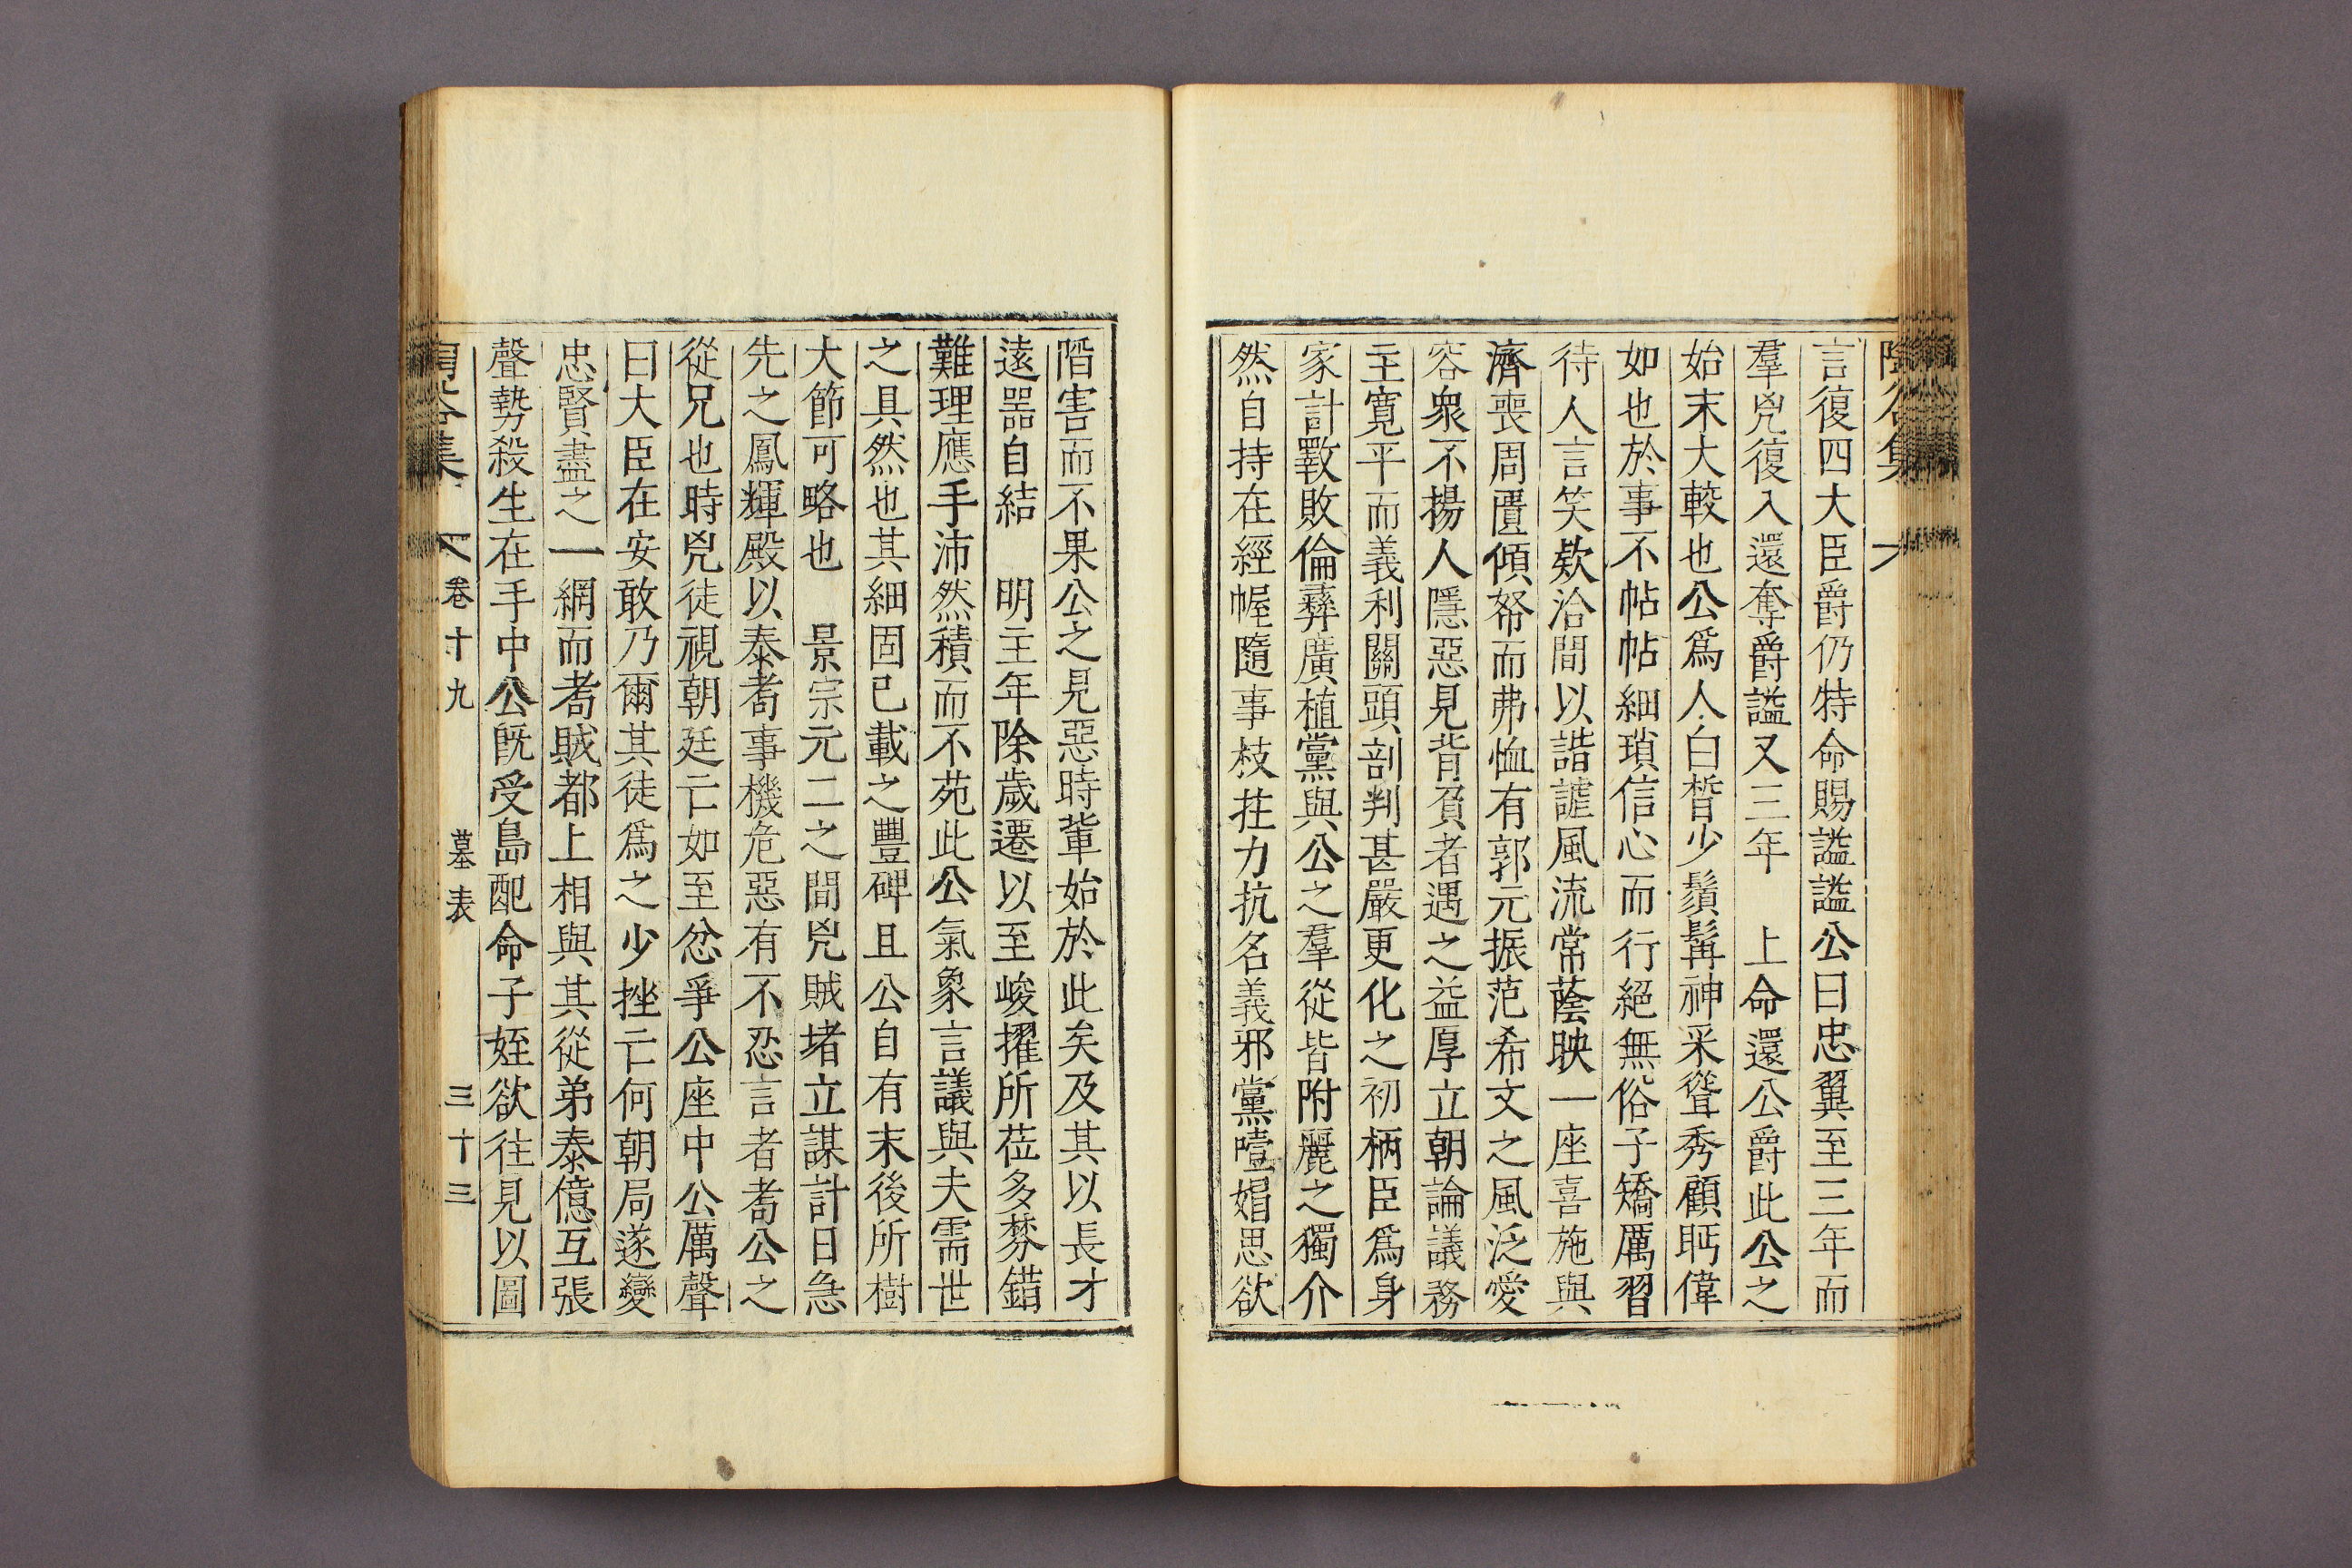 言復四大臣爵仍特命賜謚謚公曰忠翼至三年而
羣兇復入還奪爵謚又三年 上命還公爵此公之
始末大較也公爲人白晳少鬚髥神采聳秀顧眄偉
如也於事不帖帖細瑣信心而行絕無俗子矯厲習
待人言笑欵洽間以諧謔風流常蔭映一座喜施與
濟喪周匱傾帑而弗恤有郭元振范希文之風泛愛
容衆不揚人隱惡見背負者遇之益厚立朝論議務
主寬平而義利關頭剖判甚嚴更化之初柄臣爲身
家計斁敗倫彞廣植黨與公之羣從皆附麗之獨介
然自持在經幄隨事枝拄力抗名義邪黨噎媢思欲
階害而不果公之見惡時輩始於此矣及其以長才
遠噐自結 明主年除歲遷以至峻擢所莅多棼錯
難理應手沛然積而不苑此公氣象言議與夫需世
之具然也其細固已載之豐碑且公自有末後所樹
大節可略也 景宗元二之間兇賊堵立謀計日急
先之鳳輝殿以泰耉事機危惡有不忍言者耉公之
從兄也時兇徒視朝廷亡如至忿爭公座中公厲聲
曰大臣在安敢乃爾其徒爲之少挫亡何朝局遂變
忠賢盡之一網而耉賊都上相與其從弟泰億互張
聲勢殺生在手中公旣受島配命子姪欲往見以圖
卷十九 墓表 三十三